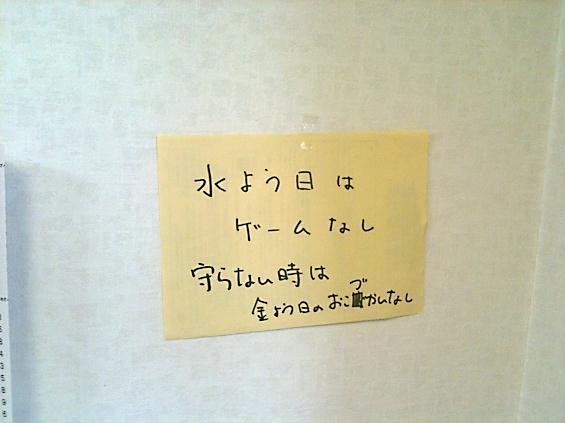 水よう日は
ゲームなし
守らない時は
金よう日のおこづかいなし